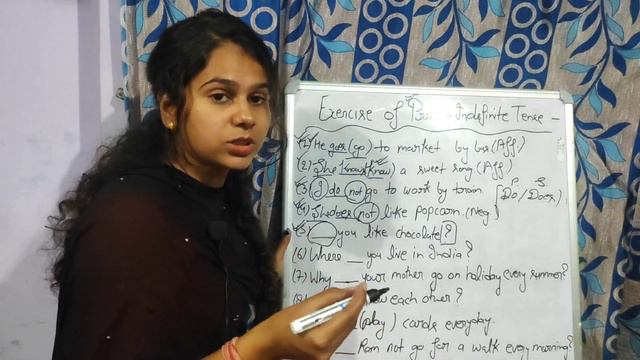 Exercise of Pres - Indefinite Tense -
(1) He goes (go) to market by bus (Aff)
(2) She Knows (Know) a sweet song. (Aff)
(3) I do (not) go to work by train. (Do/Does)
(4) She does (not) like popcorn. (Neg
(5) you like chocolate?
(6) Where __ you live in India?
(7) Why __ your mother go on holiday every summer?
(8) each other?
(play) cards everyday.
__ Ram not go for a walk every morning?